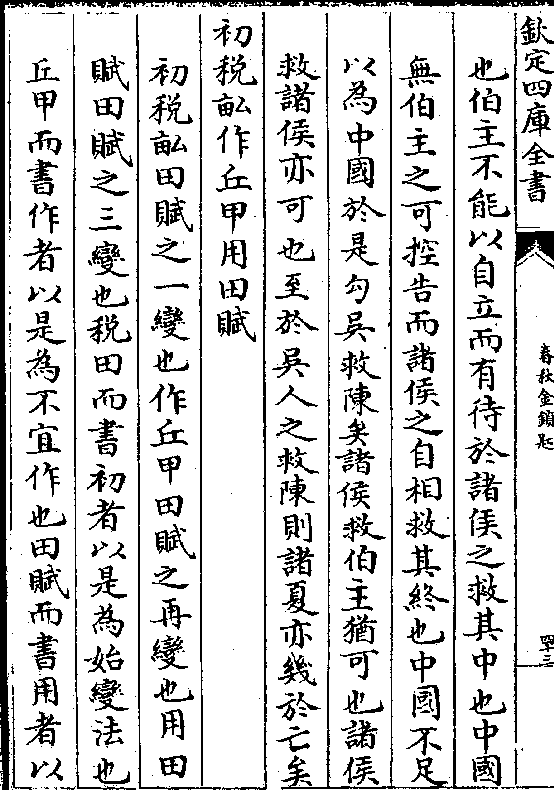 欽定四庫全書
春秋金鎖匙
四十三
也伯主不能以自立而有待於諸侯之救其中也中國
無伯主之可控告而諸侯之自相救其終也中國不足
以為中國於是勾吳救陳矣諸侯救伯主猶可也諸侯
救諸侯亦可也至於吳人之救陳則諸夏亦幾於亡矣
初税畝作丘甲用田賦
初税畝田賦之一變也作丘甲田賦之再變也用田
賦田賦之三變也税田而書初者以是為始變法也
丘甲而書作者以是為不宜作也田賦而書用者以